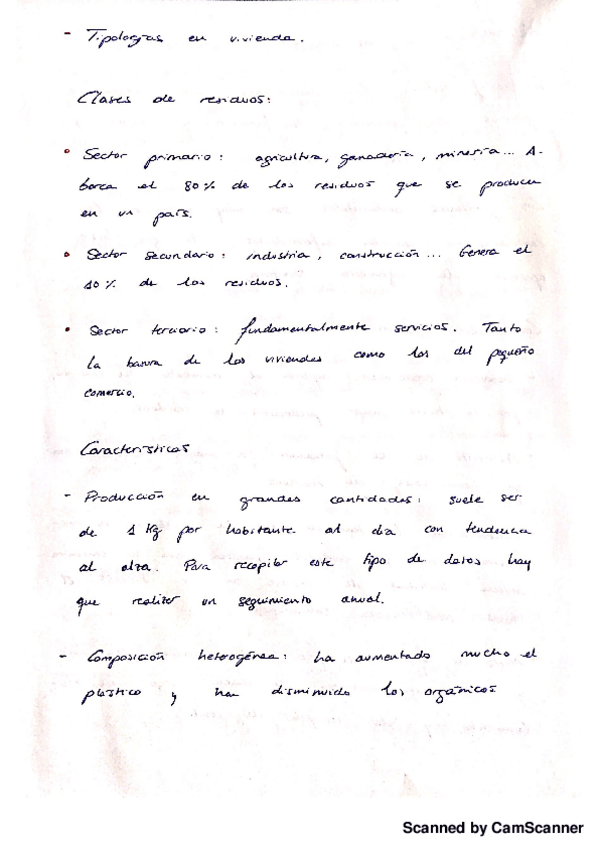 - Tipologías en vivienda.
Clases de residuos:
• Sector primario: agricultura, ganadería, minería... A-
barca el 80% de los residuos que se producen
en un país.
• Sector secundario: industria, construcción... Genera el
10% de los residuos.
• Sector terciario: fundamentalmente servicios. Tanto
la basura de las viviendas como los del pequeño
comercio.
Características
- Producción en grandes cantidades: suele ser
de 1 Kg por habitante al día con tendencia
al alza. Para recopilar este tipo de datos hay
que realizar un seguimiento anual.
- Composición heterogénea: ha aumentado mucho el
plástico y han disminuido los orgánicos
Scanned by CamScanner